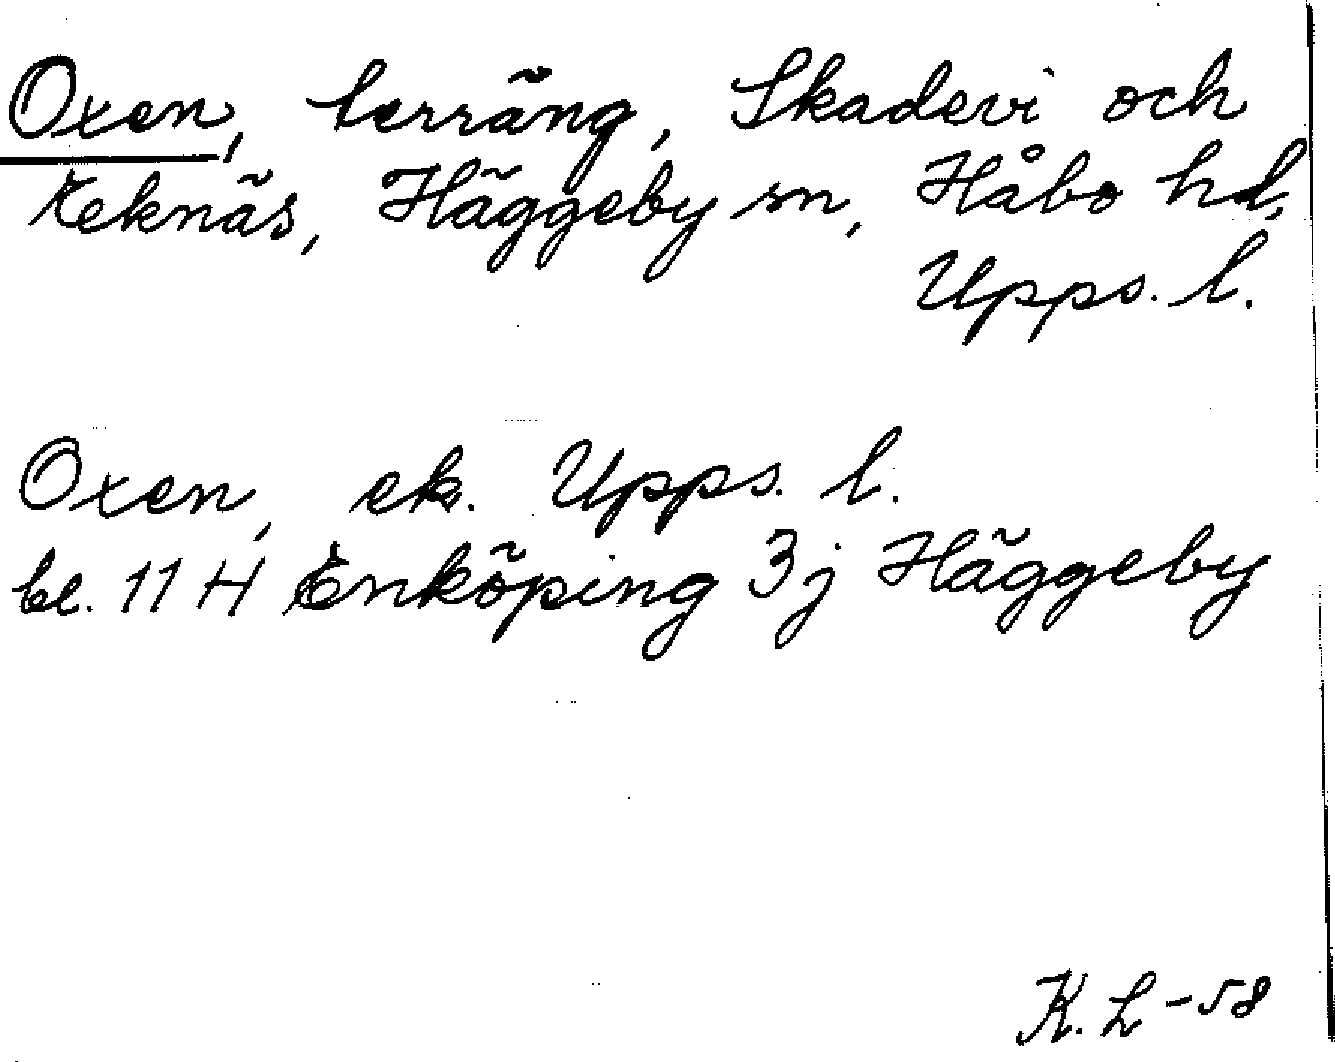 Oxen, terräng, Skadevi och
Reknäs, Häggeby sn, Håbo hd,
Upps. l.
Oxen, ek. Upps. l.
bl. 11 H Enköping 3j Häggeby
K. L -58